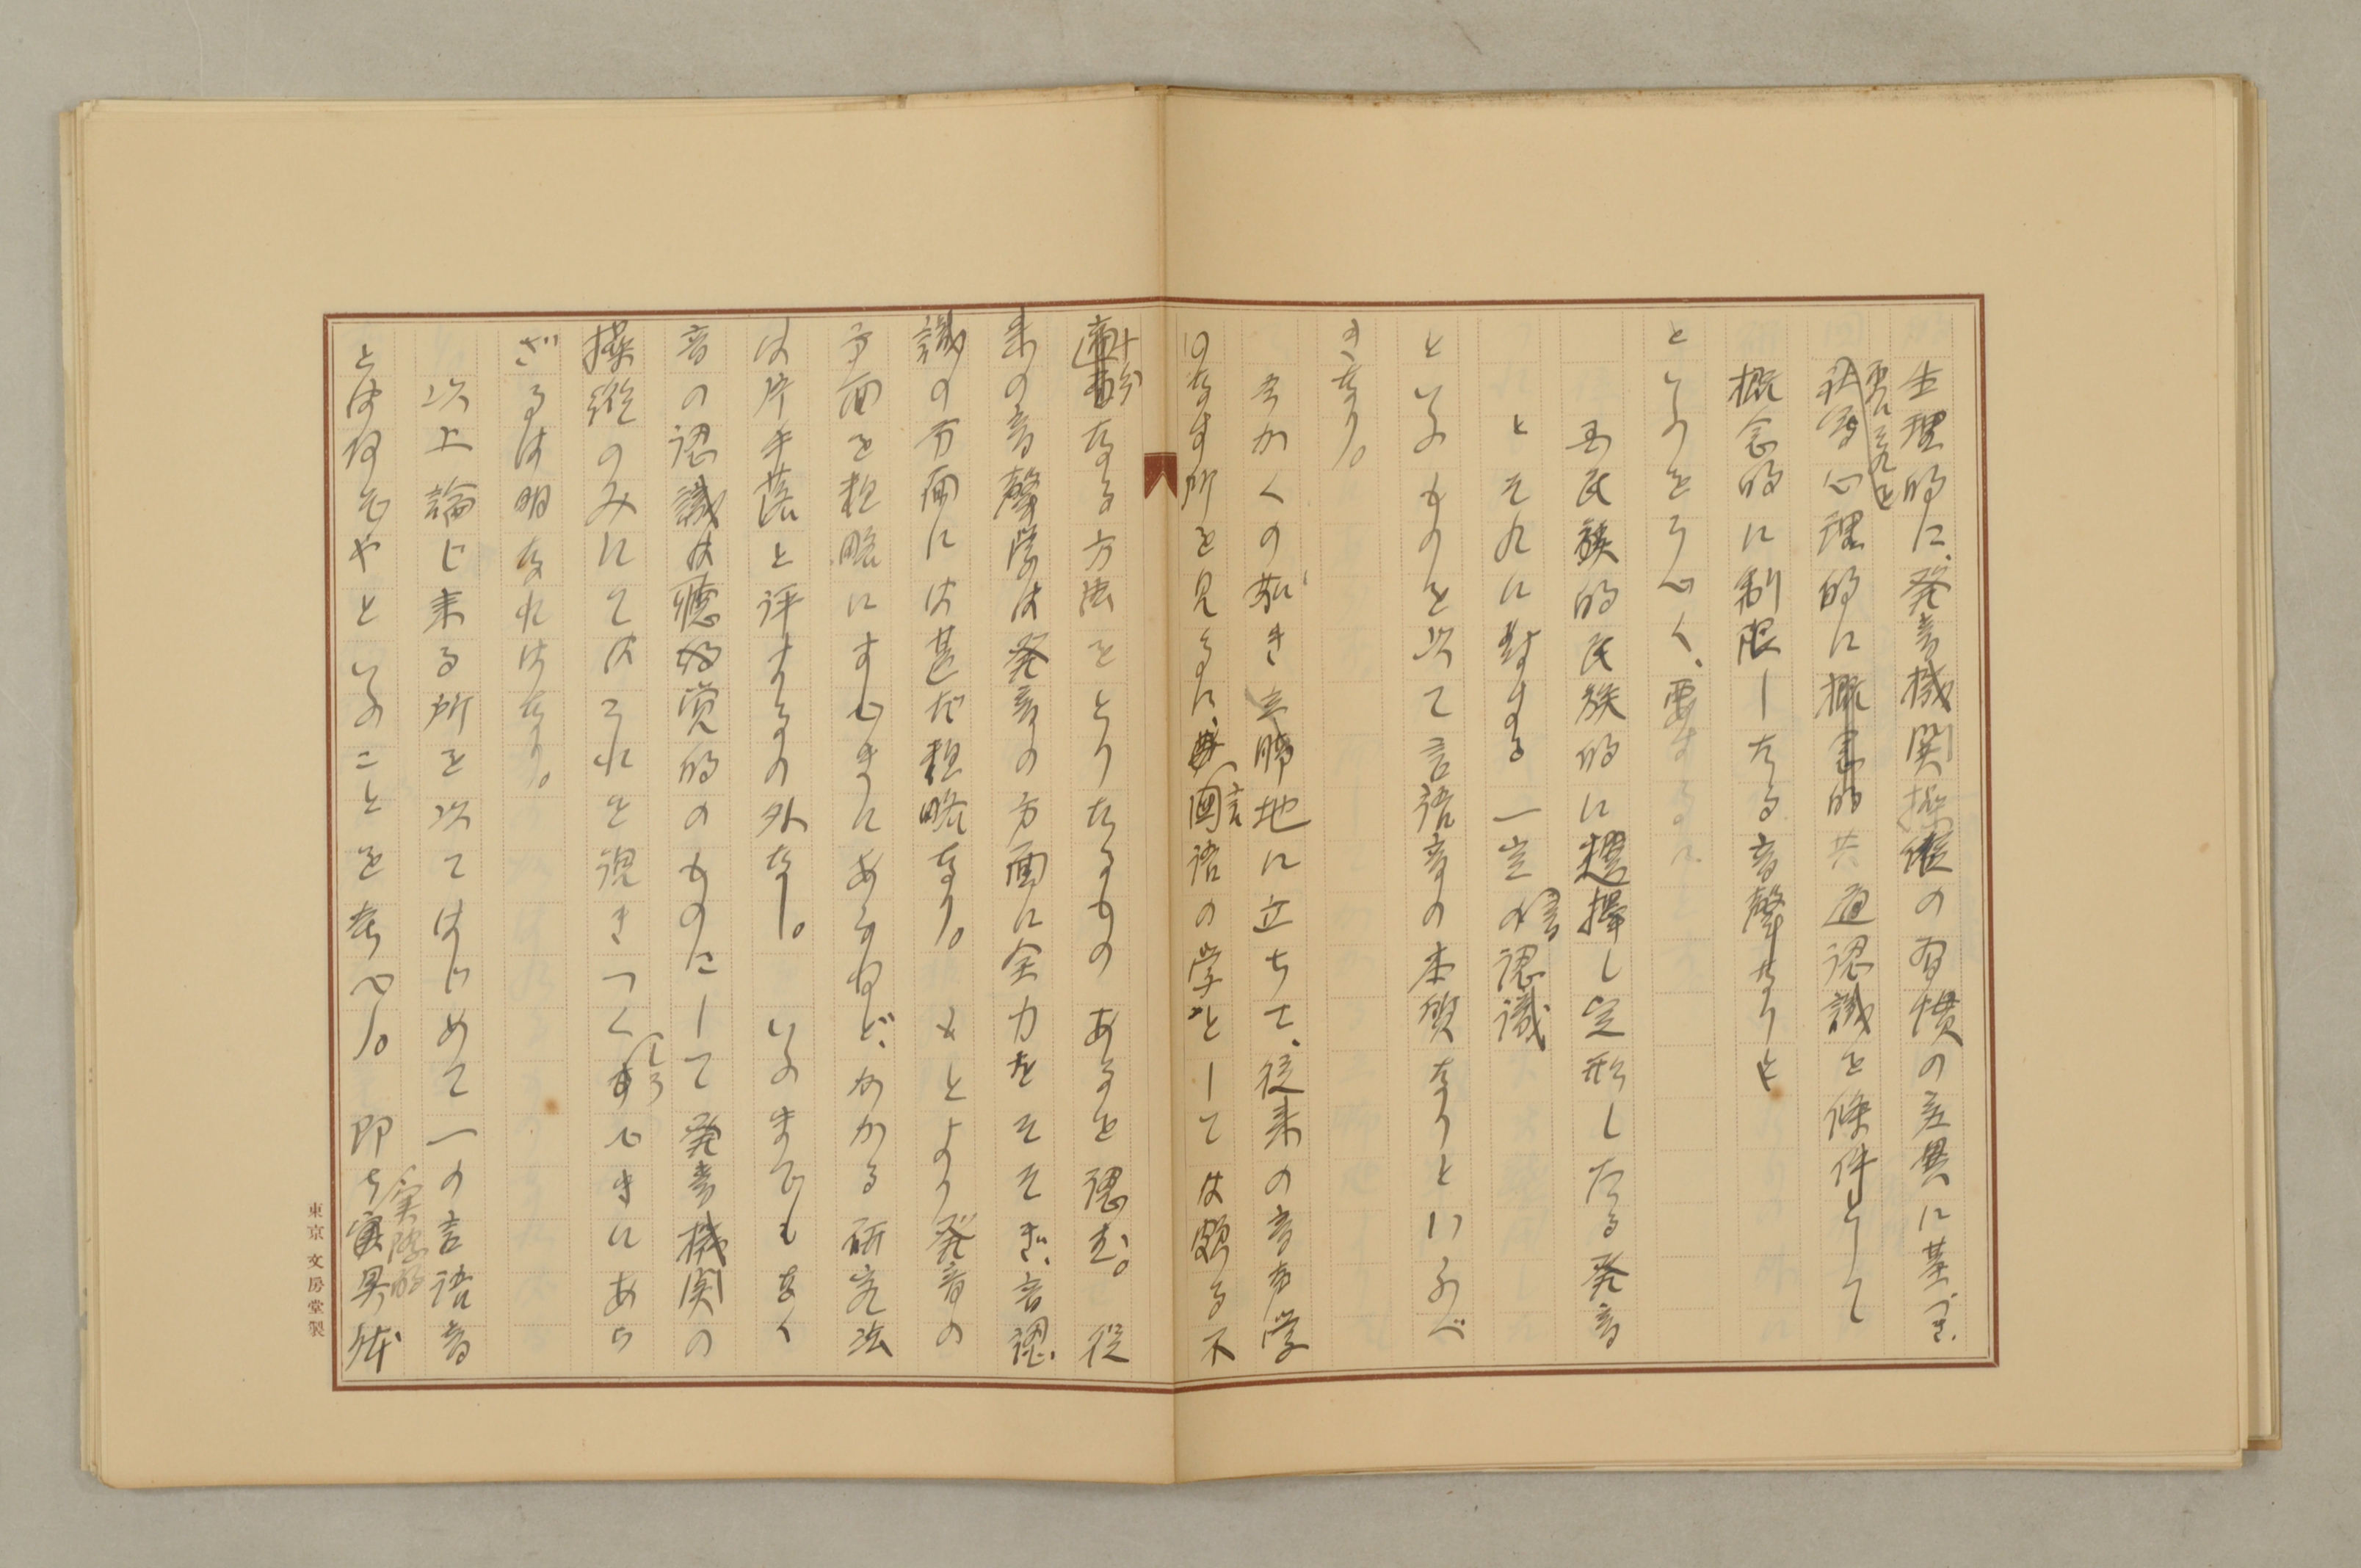 生理的に、発音機関操縦の習慣の差異に基づき、
更に之れを
社会心理的に概念的共通認識を條件として
概念的に制限したる音聲なりと
いふを得べく、要するに
民族的民族的に選擇し定形したる発音
とそれに対する一定の認識
といふものを以て言語音の本質なりといふべ
きなり。
今かくの如き立脚地に立ちて、従来の音声学
のなす所を見るに、言語の学としては頗る不
十分
なる方法をとりたるものあるを認む。従
来の音聲学は発音の方面に全力をそそぎ、音認
識の方面には甚だ粗略なり。もとより発音の
方面を粗略にすべきにあらねど、かかる研究法
は片手落と評するの外なし。いふまでもなく
音の認識は聴覚的のものにして発音機関の
操縦のみにてはこれを説きつくすべきにあら
ざるは明なればなり。
以上論じ来る所を以てはじめて一の言語音
とは何ぞやといふことを考へし。即ち実際的具体
東京 文房堂製